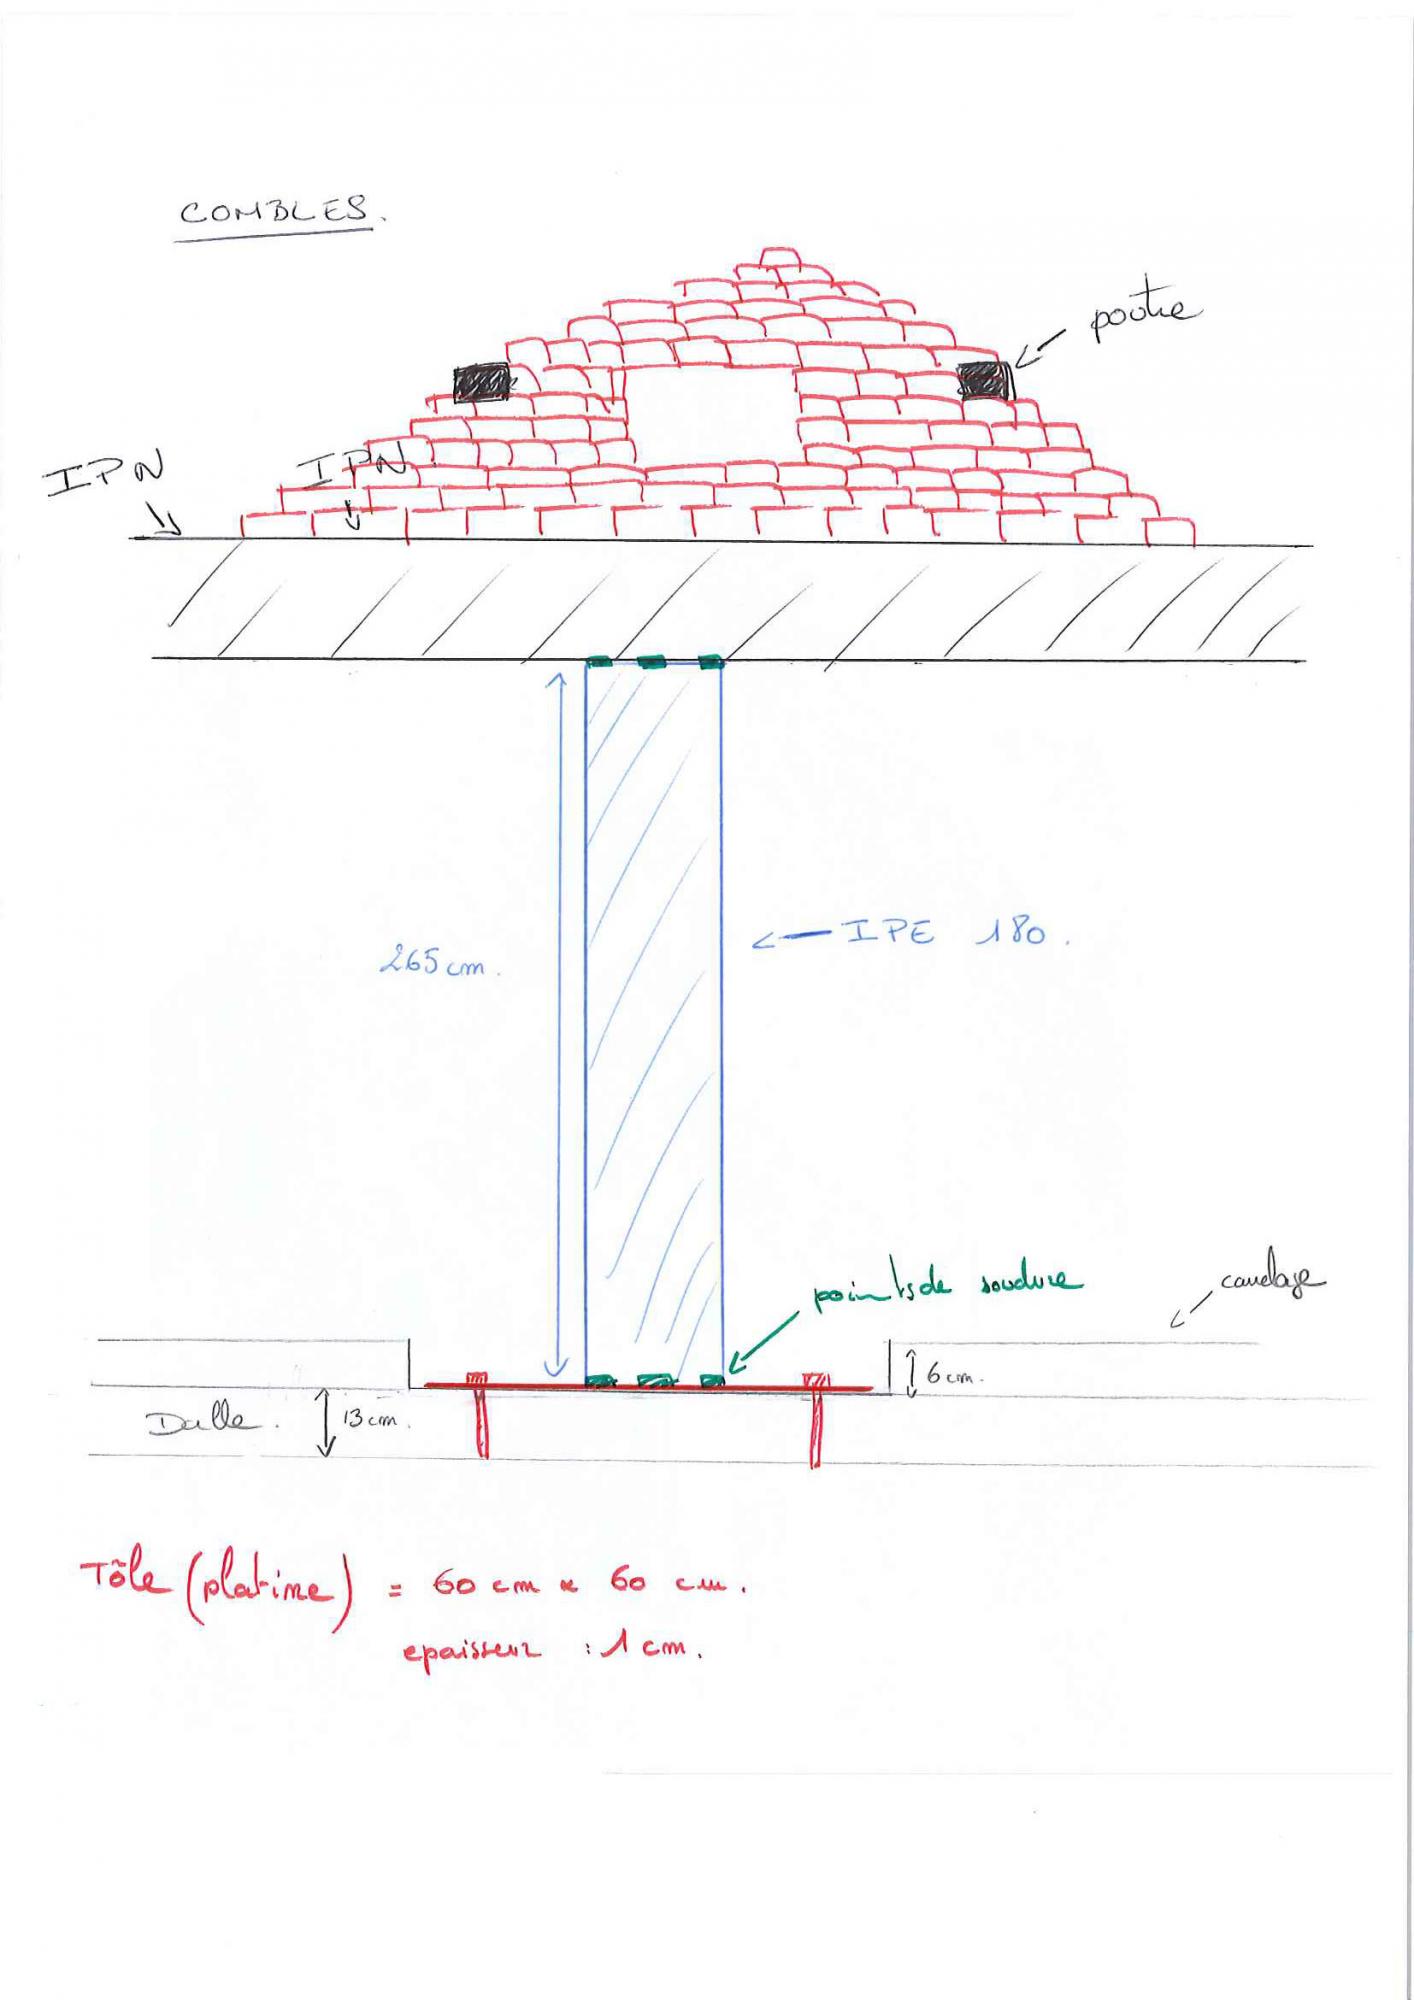 COMBLES.
poutre
IPN
IPN
265 cm.
IPE 180.
points de soudure
carrelage
6 cm.
Dalle.
13 cm.
Tôle (platine) = 60 cm x 60 cm.
epaisseur : 1 cm.